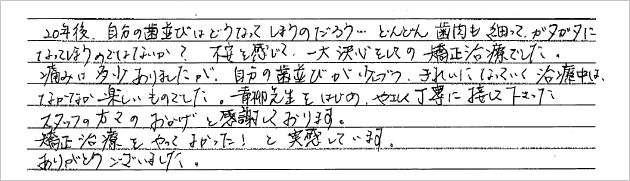 20年後、自分の歯並びはどうなってしまうのだろう… どんどん歯肉も細って、ガタガタに
なってしまうのではないか？ 不安を感じて、一大決心をしての矯正治療でした。
痛みは多少ありましたが、自分の歯並びが少しづつ、きれいになっていく治療中は、
なかなか楽しいものでした。青柳先生をはじめ、やさしく丁寧に接して下さった
スタッフの方々のおかげと感謝しております。
矯正治療をやってよかった！と実感しています。
ありがとうございました。